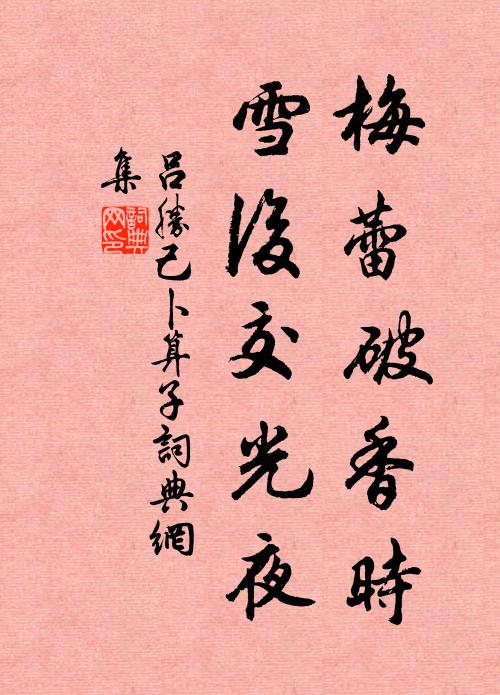 梅蕾破香時
雪後交光夜
呂勝己卜算子詞典網
集
詞典
网印